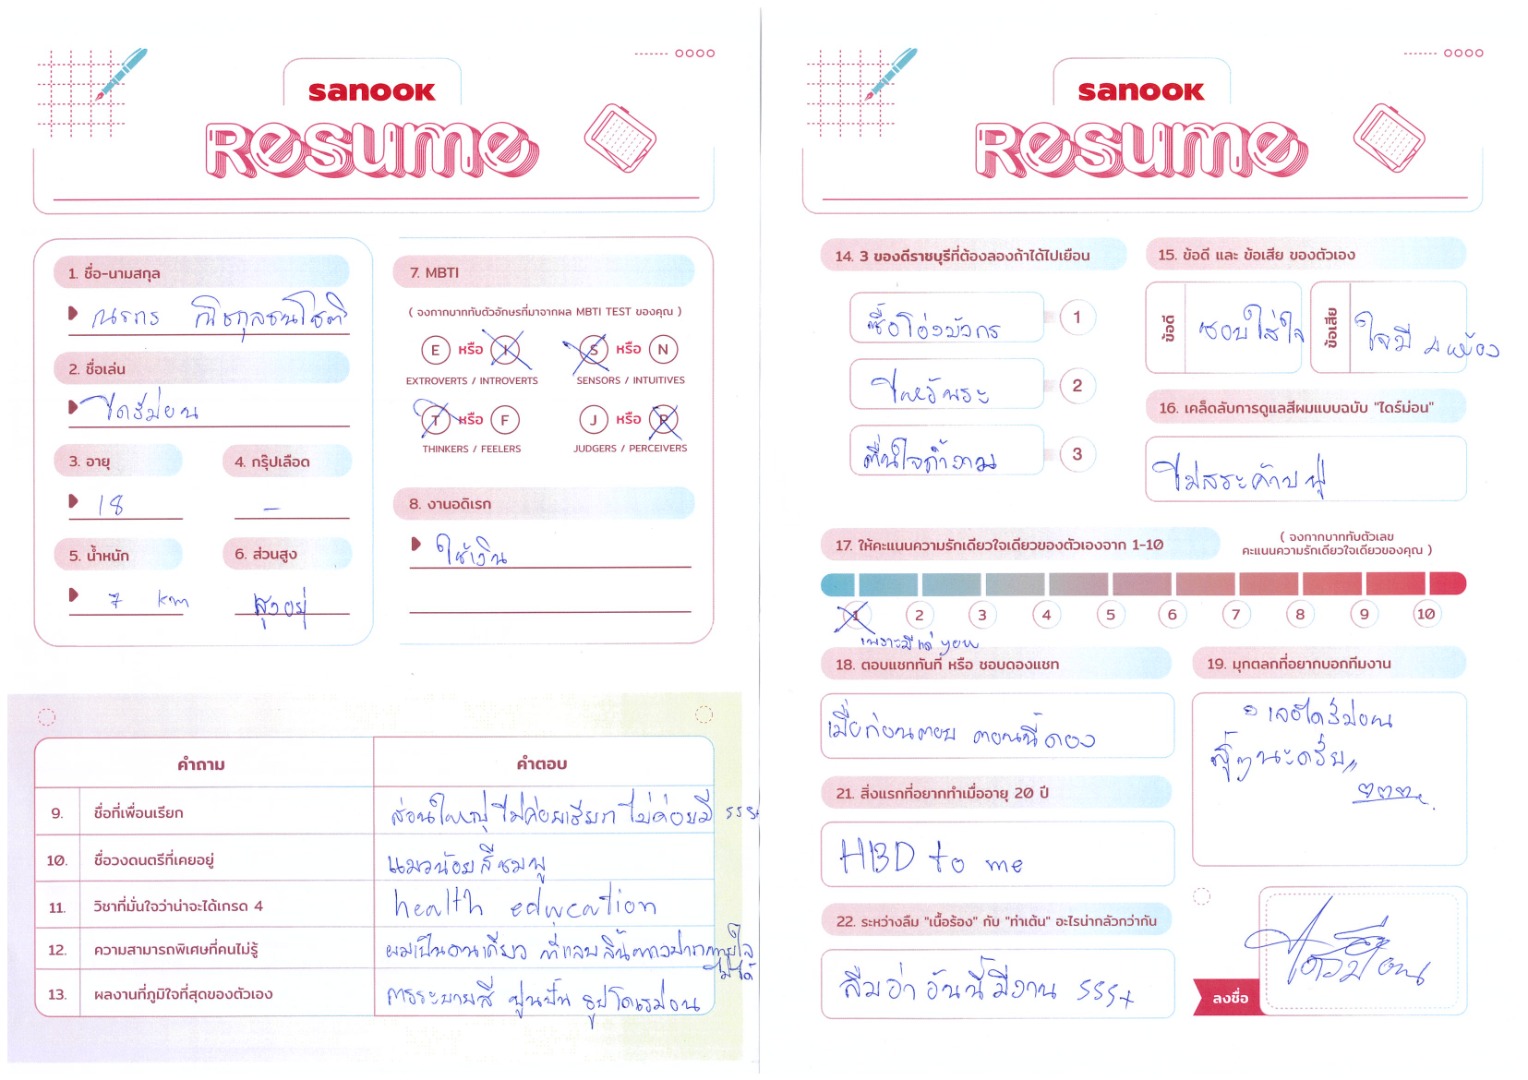 sanook
Resume
1. ชื่อ-นามสกุล
ณรกร ณิชกุลธนโชติ
2. ชื่อเล่น
ไดร์ม่อน
3. อายุ
4. กรุ๊ปเลือด
18
-
5. น้ำหนัก
6. ส่วนสูง
7 km
สูงอยู่
7. MBTI
( จงกากบาททับตัวอักษรที่มาจากผล MBTI TEST ของคุณ )
E หรือ I
S หรือ N
EXTROVERTS / INTROVERTS
SENSORS / INTUITIVES
T หรือ F
J หรือ P
THINKERS / FEELERS
JUDGERS / PERCEIVERS
8. งานอดิเรก
ใช้เงิน
คำถาม
คำตอบ
9. ชื่อที่เพื่อนเรียก
ส่วนใหญ่ไม่ค่อยเรียก ไม่ค่อยมี 555+
10. ชื่อวงดนตรีที่เคยอยู่
แมวน้อยสีชมพู
11. วิชาที่มั่นใจว่าน่าจะได้เกรด 4
health education
12. ความสามารถพิเศษที่คนไม่รู้
ผมเป็นคนเดียว ที่แลบลิ้นทางปาก
ไม่ได้
13. ผลงานที่ภูมิใจที่สุดของตัวเอง
การระบายสี ปูนปั้น รูปโดเรม่อน
sanook
Resume
14. 3 ของดีราชบุรีที่ต้องลองถ้าได้ไปเยือน
ซื้อโอ่งมังกร 1
ไหว้พระ 2
3
15. ข้อดี และ ข้อเสีย ของตัวเอง
ข้อดี
ชอบใส่ใจ
ข้อเสีย
ใจมี 4 ห้อง
16. เคล็ดลับการดูแลสีผมแบบฉบับ "ไดร์ม่อน"
ไม่สระค้าบบู่
17. ให้คะแนนความรักเดียวใจเดียวของตัวเองจาก 1-10
( จงกากบาททับตัวเลข
คะแนนความรักเดียวใจเดียวของคุณ )
1 2 3 4 5 6 7 8 9 10
เพราะมีแค่ you
18. ตอบแชททันที หรือ ชอบดองแชท
เมื่อก่อนตอบ ตอนนี้ดอง
19. มุกตลกที่อยากบอกทีมงาน
เจอไดร์ม่อน
21. สิ่งแรกที่อยากทำเมื่ออายุ 20 ปี
HBD to me
22. ระหว่างลืม "เนื้อร้อง" กับ "ท่าเต้น" อะไรน่ากลัวกว่ากัน
ลืมว่าวันนี้มีงาน 555+
ลงชื่อ
ไดร์ม่อน